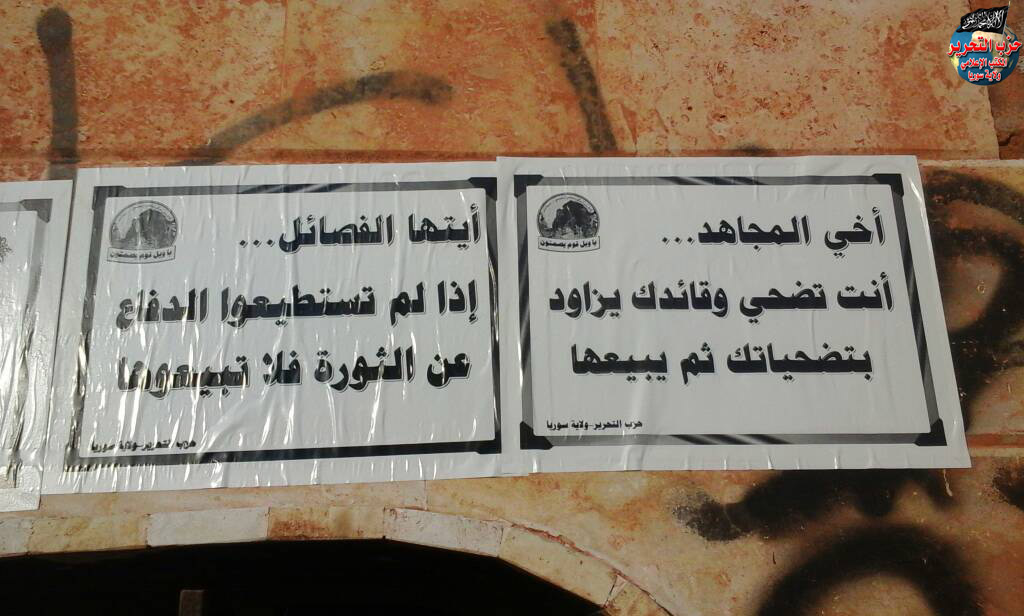 حزب التحرير
المكتب الإعلامي
ولاية سوريا
أخي المجاهد...
أنت تضحي وقائدك يزاود
بتضحياتك ثم يبيعها
يا ويل قوم يصمتون
حزب التحرير-ولاية سوريا
أيتها الفصائل...
إذا لم تستطيعوا الدفاع
عن الثورة فلا تبيعوها
يا ويل قوم يصمتون
حزب التحرير-ولاية سوريا